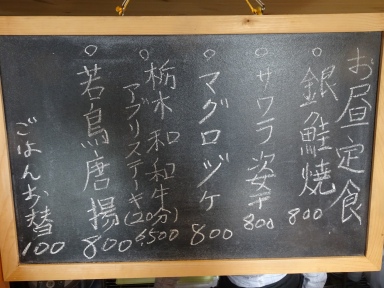 お昼定食
○銀鮭焼 800
○サワラ西京 800
○マグロヅケ 800
○栃木和和牛
アブリステーキ(20分) 6,500
○若鳥唐揚 800
ごはんお替 100